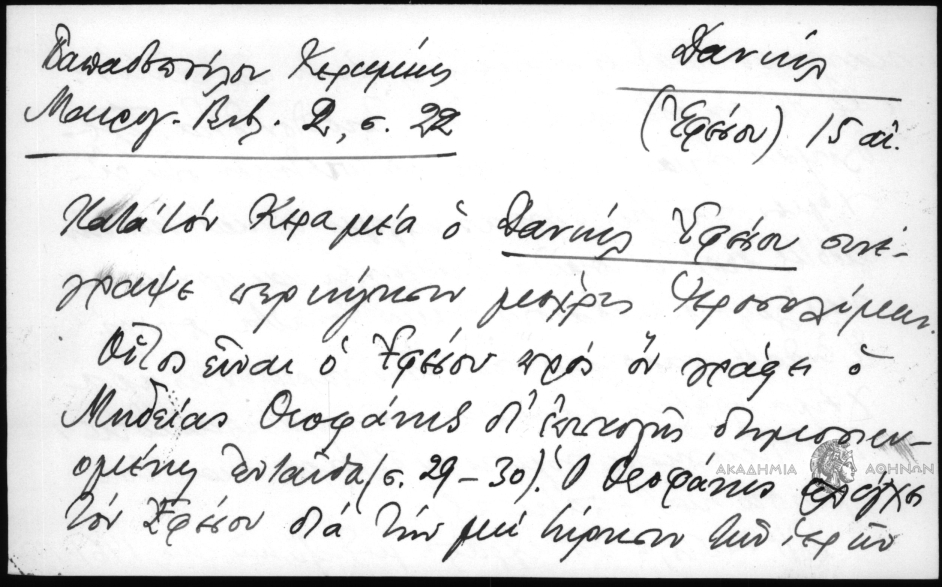 Παπαδοπούλου Κεραμέως
Μαυρογ. Βιβ. 2, σ. 22
Δανιήλ
(Ἐφέσου) 15 αἰ.
Κατὰ τὸν Κεραμέα ὁ Δανιὴλ Ἐφέσου συνέ-
γραψε περιήγησιν μέχρις Ἱεροσολύμων.
Οὗτος εἶναι ὁ Ἐφέσου πρὸς ὃν γράφει ὁ
Μηδείας Θεοφάνης δι' ἐπιστολῆς δημοσιευ-
ομένης ἐνταῦθα (σ. 29-30). Ὁ Θεοφάνης ἐλέγχει
τὸν Ἐφέσου διὰ τὴν μὴ τήρησιν τῶν ἱερῶν
ΑΚΑΔΗΜΙΑ ΑΘΗΝΩΝ